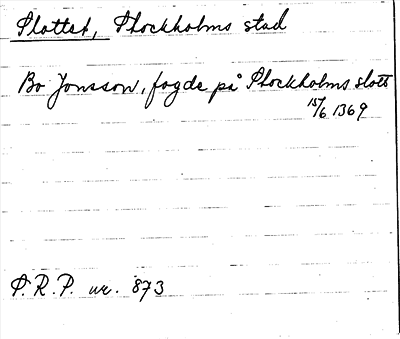 Slottet, Stockholms stad
Bo Jonsson, fogde på Stockholms slott
15/6 1369
S.R.P. nr. 873